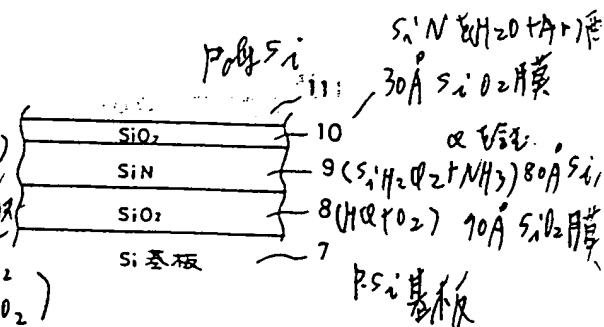 SiN を(H2O+Ar)
Poly Si
11
30Å SiO2膜
SiO2
10
SiN
9 (SiH2Cl2+NH3) 80Å Si
SiO2
8 (HCl+O2) 90Å SiO2膜
Si 基板
7
P.Si基板
2
O2)